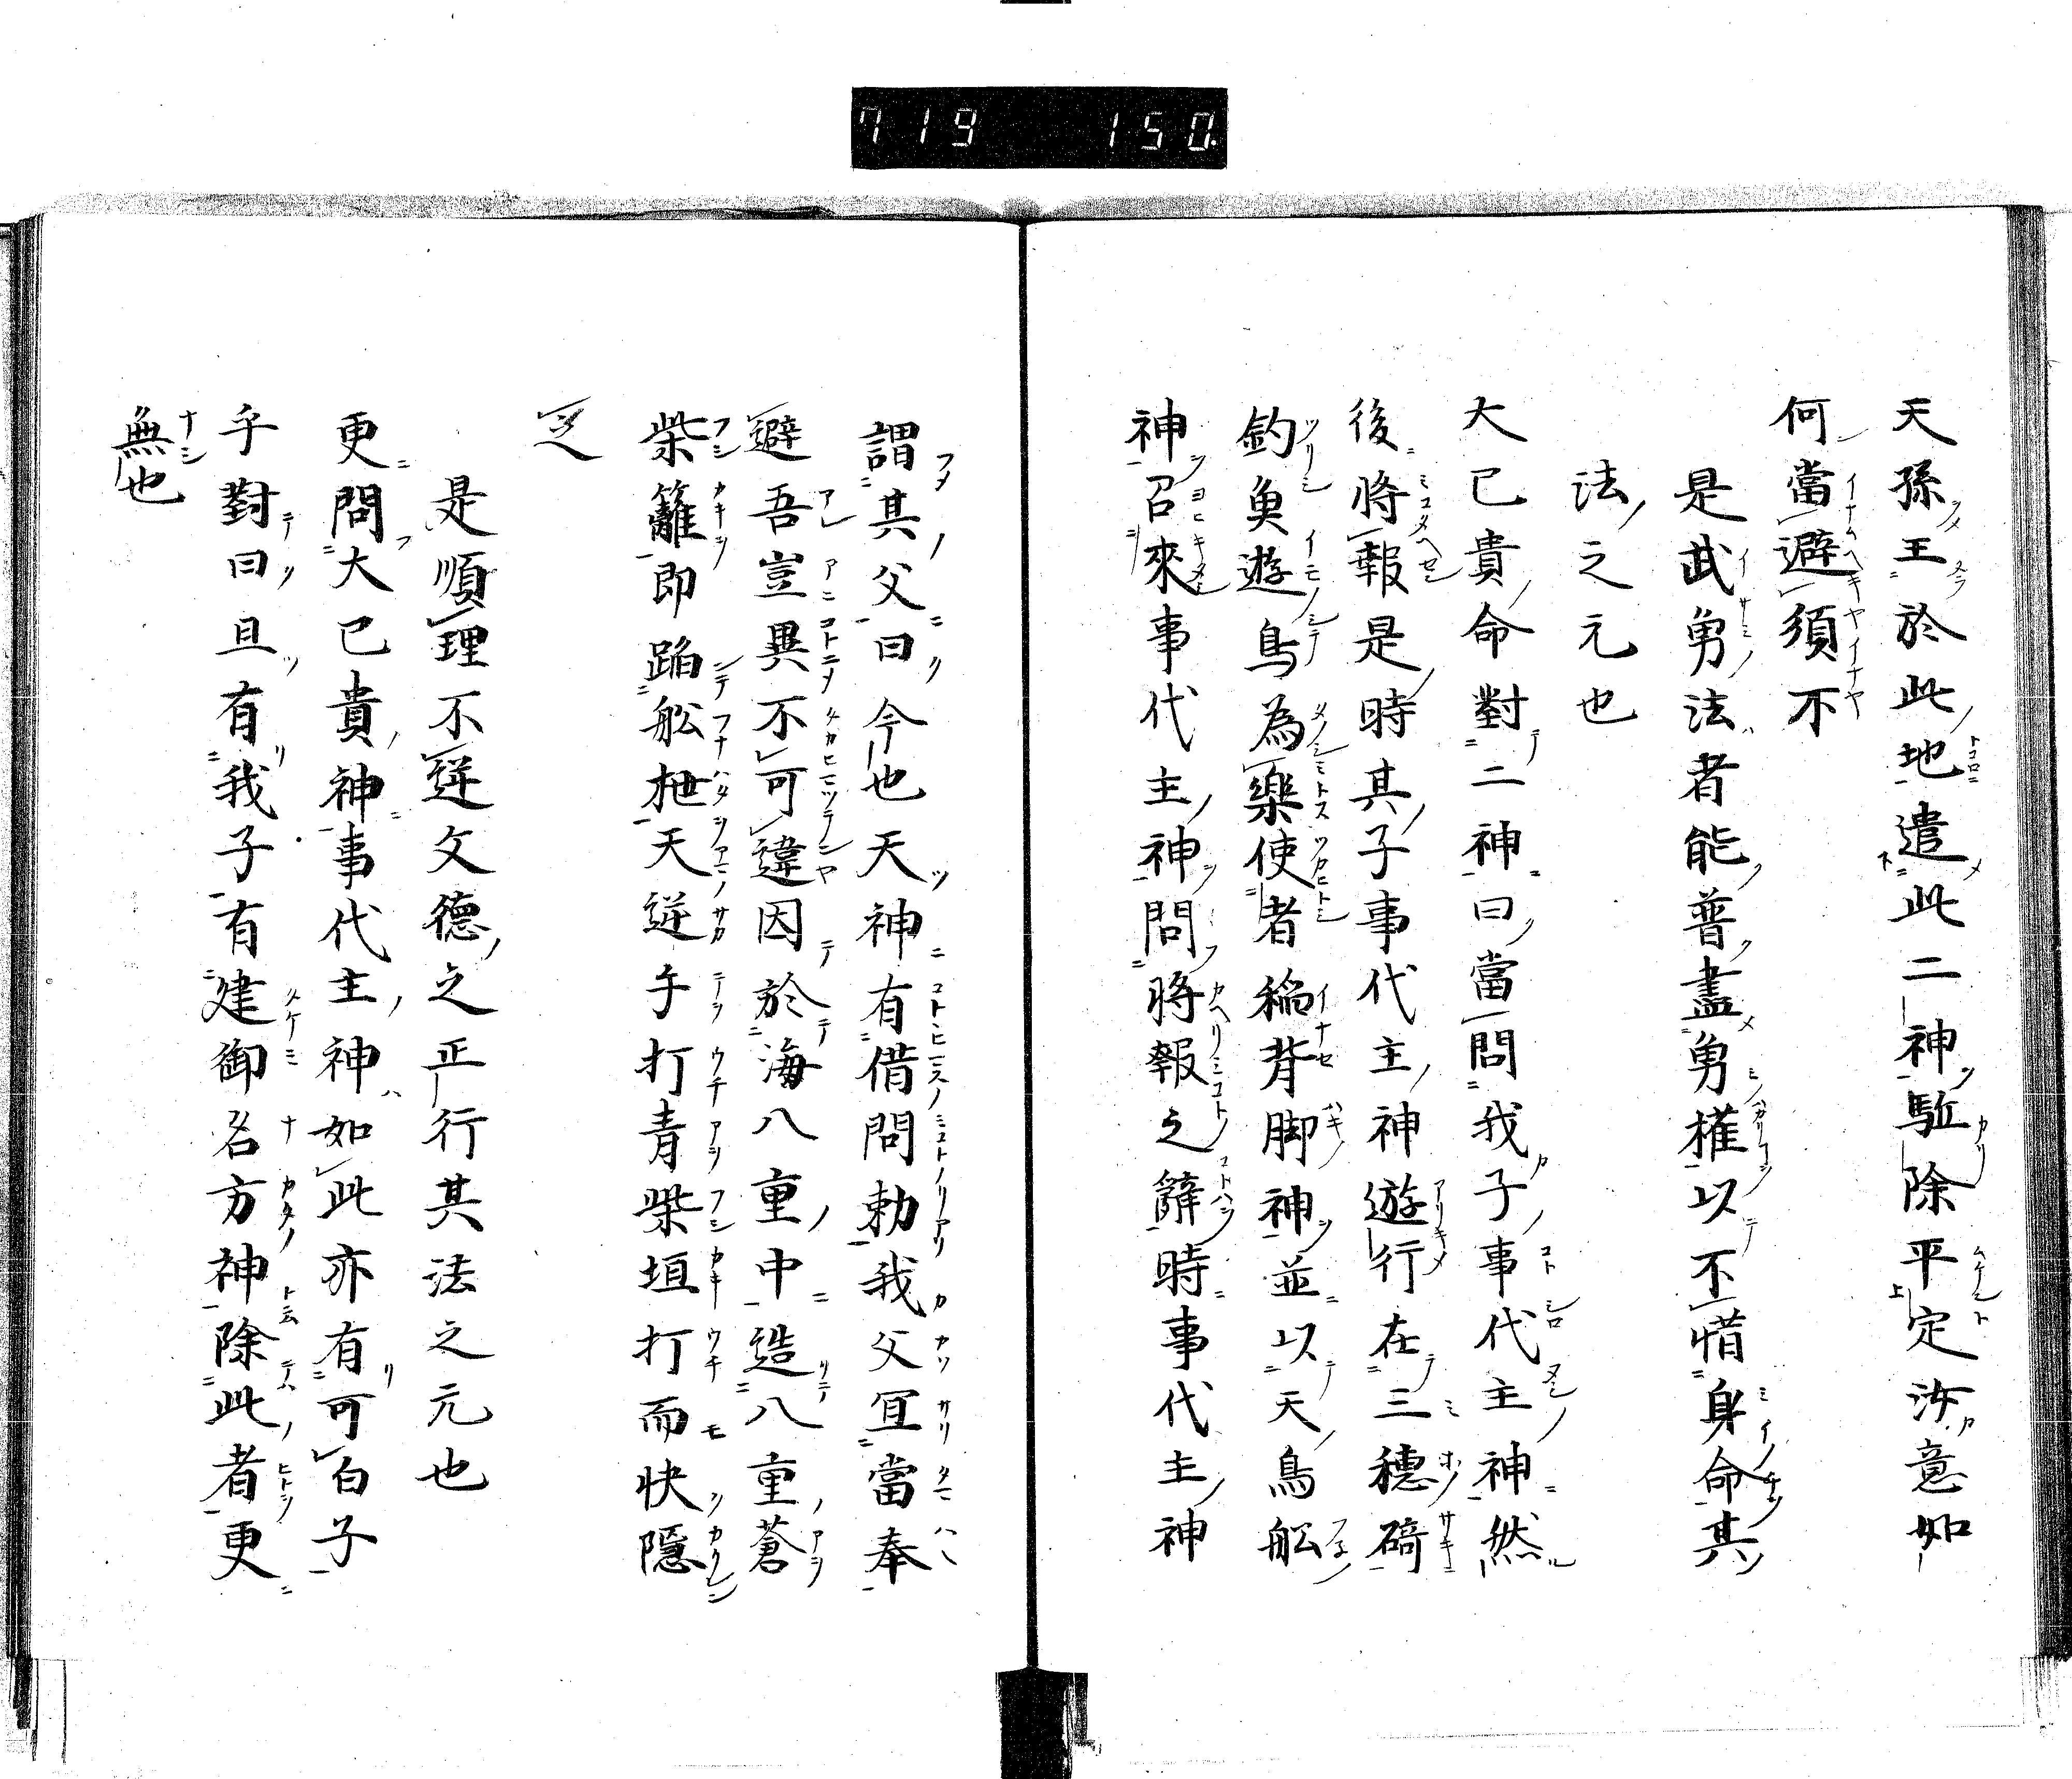 719 150.
天孫王於此地遣此二神駈除平定汝意如
何當避須不
是武勇法者能普盡勇權以不惜身命其
法之元也
大已貴命對二神曰當問我子事代主神然
後將報是時其子事代主神遊行在三穗碕
釣魚遊鳥為樂使者稲背脚神並以天鳥舩
神召來事代主神問將報之辭時事代主神
謂其父曰今也天神有借問勅我父冝當奉
避吾豈異不可違因於海八重中造八重蒼
柴籬即蹈舩枻天逆手打青柴垣打而快隱
之
是順理不逆文德之正行其法之元也
更問大已貴神事代主神如此亦有可白子
乎對曰且有我子有建御名方神除此者更
無也